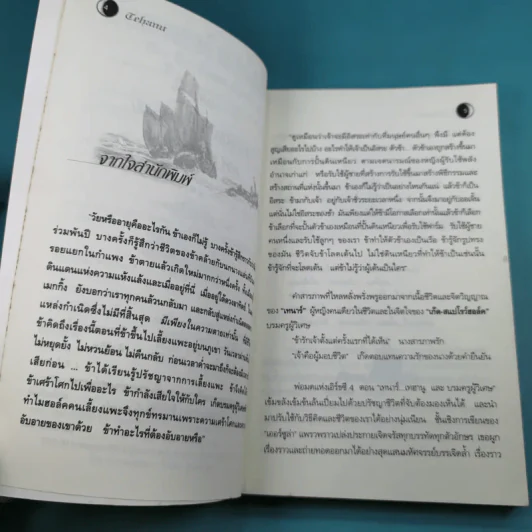 4
Tehanu
จากใจสำนักพิมพ์
"วัยหรืออายุคืออะไรกัน ข้าเองก็ไม่รู้ บางครั้งข้ารู้สึก
ร่วมพันปี บางครั้งก็รู้สึกว่าชีวิตของข้าคล้ายกับนก
รอยแยกในกำแพง ข้าตายแล้วเกิดใหม่มากกว่าหนึ่งครั้ง
ดินแดนแห่งความแห้งแล้งและเมื่ออยู่ที่นี่
เมกกิ้ง ยังบอกว่าเราทุกคนล้วนกลับมา และกลับสู่แหล่งกำเนิด
แหล่งกำเนิดซึ่งไม่มีที่สิ้นสุด มีเพียงในความตายเท่านั้น
ข้าคิดถึงเรื่องนี้ตอนที่ข้าขึ้นไปเลี้ยงแพะอยู่บนภูเขา วันเวลา
ไม่หยุดยั้ง ไม่หวนย้อน ไม่คืนกลับ ก่อนเวลาค่ำ
เสียก่อน ... ข้าได้เรียนรู้ปรัชญาจากการเลี้ยงแพะ
ข้าเศร้าโศกไปเพื่ออะไร ข้ากำลังเสียใจให้กับใคร
ทำไมฮอล์คคนเลี้ยงแพะจึงทุกข์ทรมานเพราะความเศร้าโศกและ
อับอายของเขาด้วย ข้าทำอะไรที่ต้องอับอายหรือ"
"ดูเหมือนว่าเจ้าจะมีอิสระเท่ากับที่มนุษย์คนอื่นๆ พึงมี แต่ต้อง
สูญเสียอะไรไปบ้าง อะไรทำให้เจ้าเป็นอิสระ ตัวข้า ตัวข้าเองถูกสร้างขึ้นมา
เหมือนกับการปั้นดินเหนียว ตามเจตนารมณ์ของหญิงผู้รับใช้พลัง
อำนาจเก่าแก่ หรือรับใช้ผู้ชายที่สร้างการรับใช้ขึ้นมาสร้างพิธีกรรมและ
สร้างสถานที่แห่งนั้นขึ้นมา ข้าเองก็ไม่รู้ว่าเป็นอย่างไหนกันแน่ แล้วข้าก็เป็น
อิสระ ข้ามากับเจ้า อยู่กับเจ้าชั่วระยะเวลาหนึ่ง จากนั้นจึงมาอยู่กับออเจี้ยน
แต่นั่นไม่ใช่อิสระของข้า มันเพียงแต่ให้ข้ามีโอกาสเลือกเท่านั้นแล้วข้าก็เลือก
ข้าเลือกที่จะปั้นตัวข้าเองเหมือนที่ปั้นดินเหนียวเพื่อรับใช้ฟาร์ม รับใช้ผู้ชาย
คนหนึ่งและรับใช้ลูกๆ ของเรา ข้าทำให้ตัวข้าเองเป็นเรือ ข้ารู้จักรูปทรง
ของมัน ชีวิตจับข้าโลดเต้นไป ไม่ใช่ดินเหนียวที่ทำให้ข้าเป็นเช่นนั้น
ข้ารู้จักที่จะโลดเต้น แต่ข้าไม่รู้ว่าผู้เต้นเป็นใคร"
คำสารภาพที่ไหลหลั่งพรั่งพรูออกมาจากเนื้อชีวิตและจิตวิญญาณ
ของ "เทนาร์" ผู้หญิงคนเดียวในชีวิตและในจิตใจของ "เก็ด-สแปโรว์ฮอล์ค"
บมครูผู้วิเศษ
"ข้ารักเจ้าตั้งแต่ครั้งแรกที่ได้เห็น" นางสารภาพรัก
"เจ้าคือผู้มอบชีวิต" เก็ดตอบแทนความรักของนางด้วยคำยืนยัน
พ่อมดแห่งเอิร์ธซี 4 ตอน "เทนาร์..เทฮานู และ บรมครูผู้วิเศษ"
เข้มขลังเข้มข้นล้นเปี่ยมไปด้วยปรัชญาชีวิตที่จับต้องมองเห็นได้ และนำ
มาปรับใช้กับวิธีคิดและชีวิตของเราได้อย่างนุ่มเนียน ชั้นเชิงการเขียนของ
"เออร์ซูล่า" แพรวพราวเปล่งประกายเจิดจรัสทุกบรรทัดทุกตัวอักษร เธอผูก
เรื่องราวและถ่ายทอดออกมาได้อย่างแสนมหัศจรรย์บรรเจิดล้ำ เรื่องราว